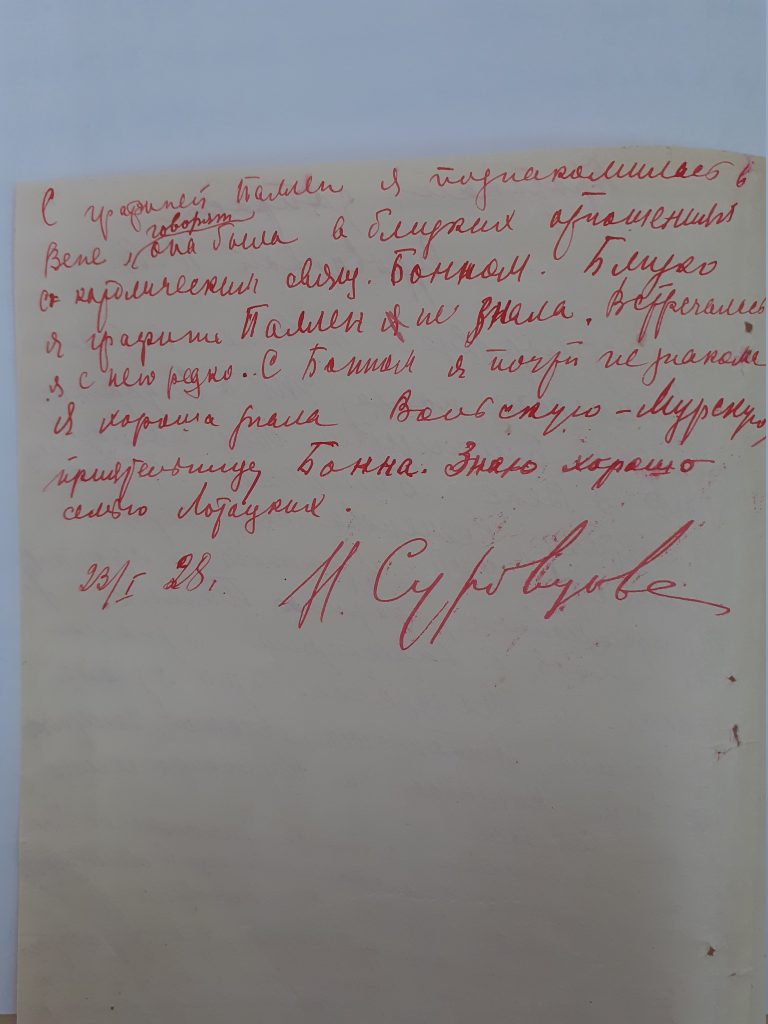 С графиней Паллен я познакомилась в
Вене, говорят она была в близких отношениях
с католическим свящ. Бонном. Близко
я графини Паллен я не знала. Встречалась
я с нею редко. С Бонном я почти не знакома
Я хорошо знала -Мурскую,
приятельницу Бонна. Знаю хорошо
семью Лотоцких.
23/I 28. Н. Суровцова